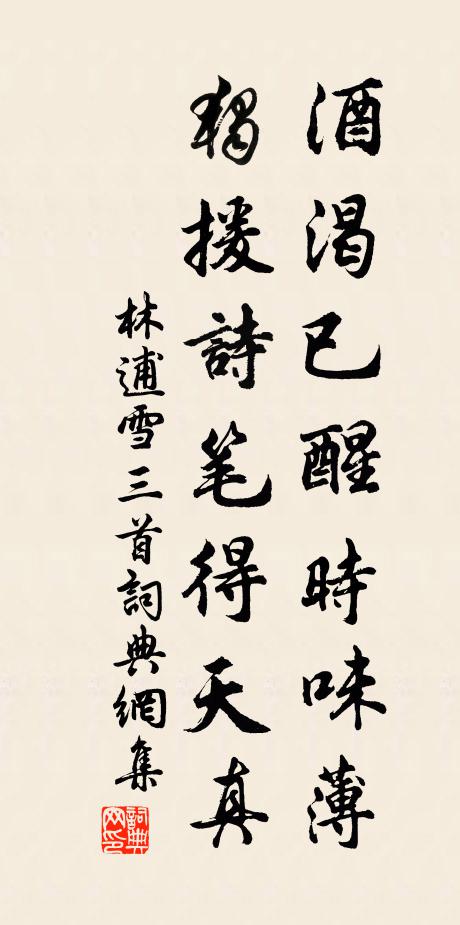 酒渴已醒時味薄
獨援詩笔得天真
林逋雪三首詞典網集
詞典網印